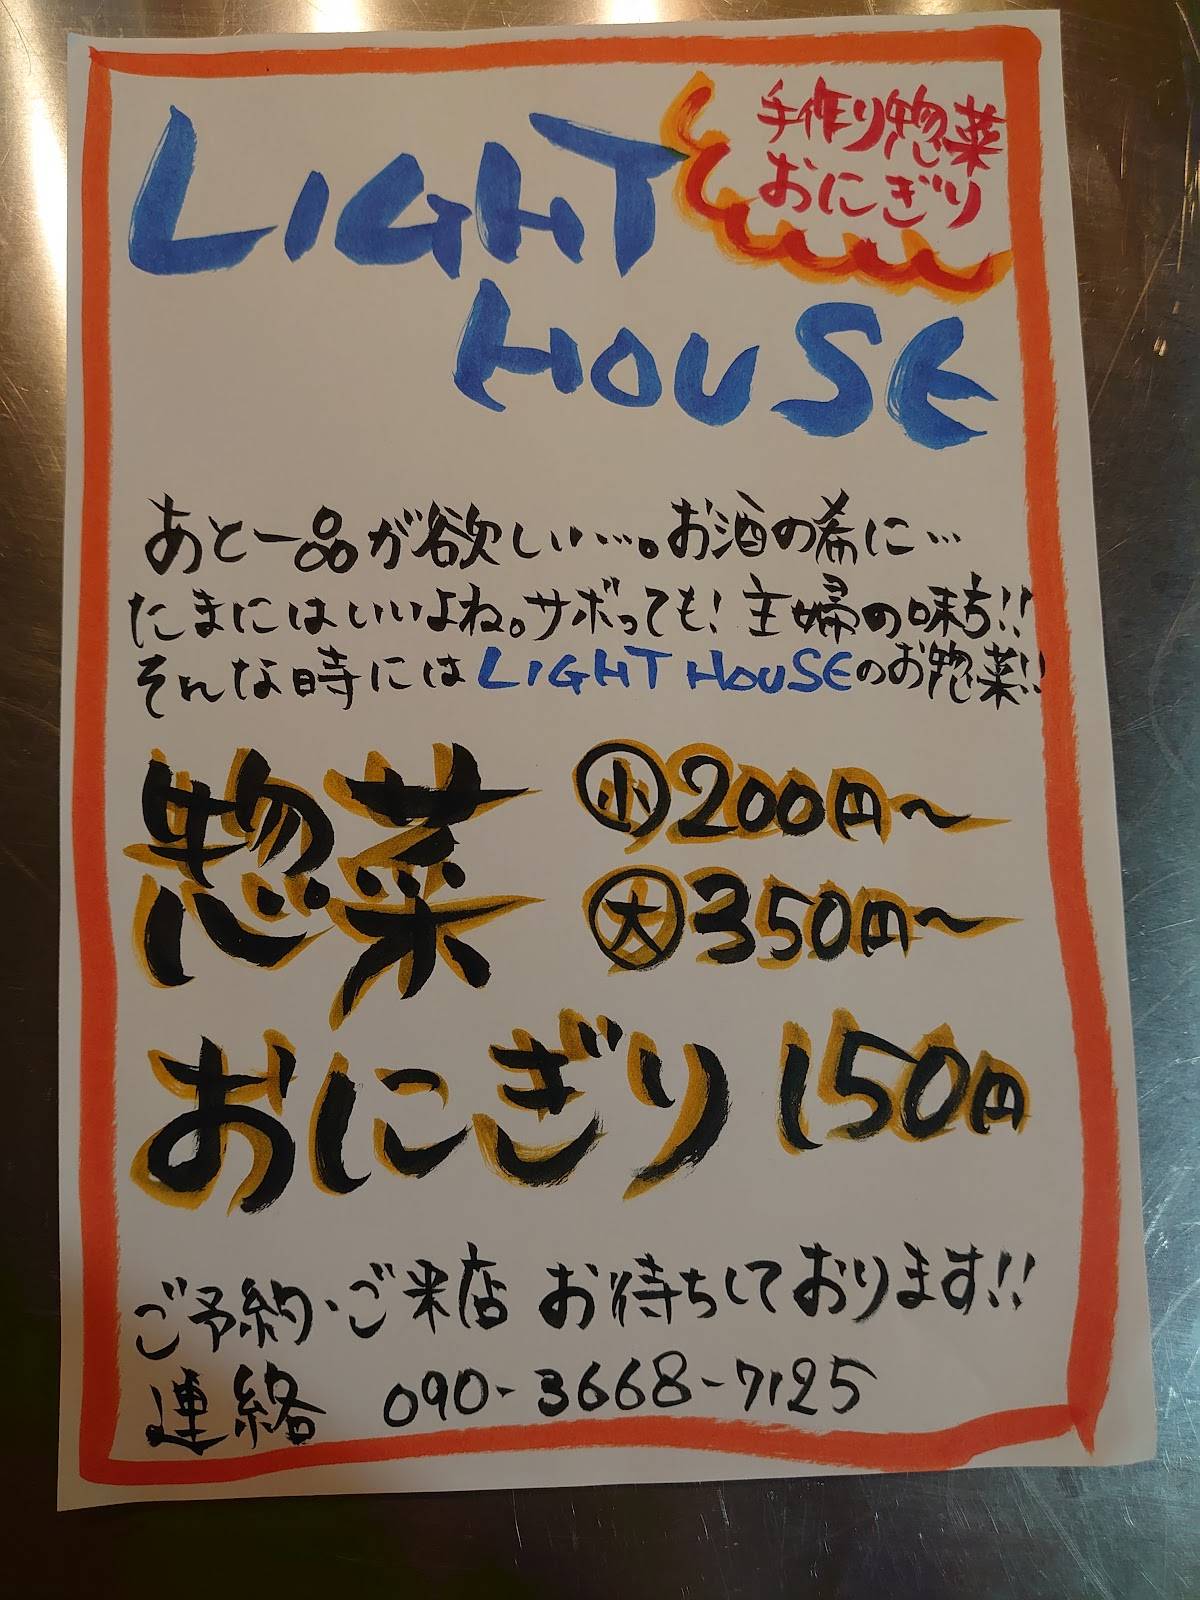 手作り惣菜
おにぎり
LIGHT
HOUSE
あと一品が欲しい…。お酒の肴に…
たまにはいいよね。サボっても!主婦の味方!!
そんな時にはLIGHT HOUSEのお惣菜!!
惣菜 ㊙小200円〜
大350円〜
おにぎり 150円
ご予約・ご来店 お待ちしております!!
連絡 090-3668-7125